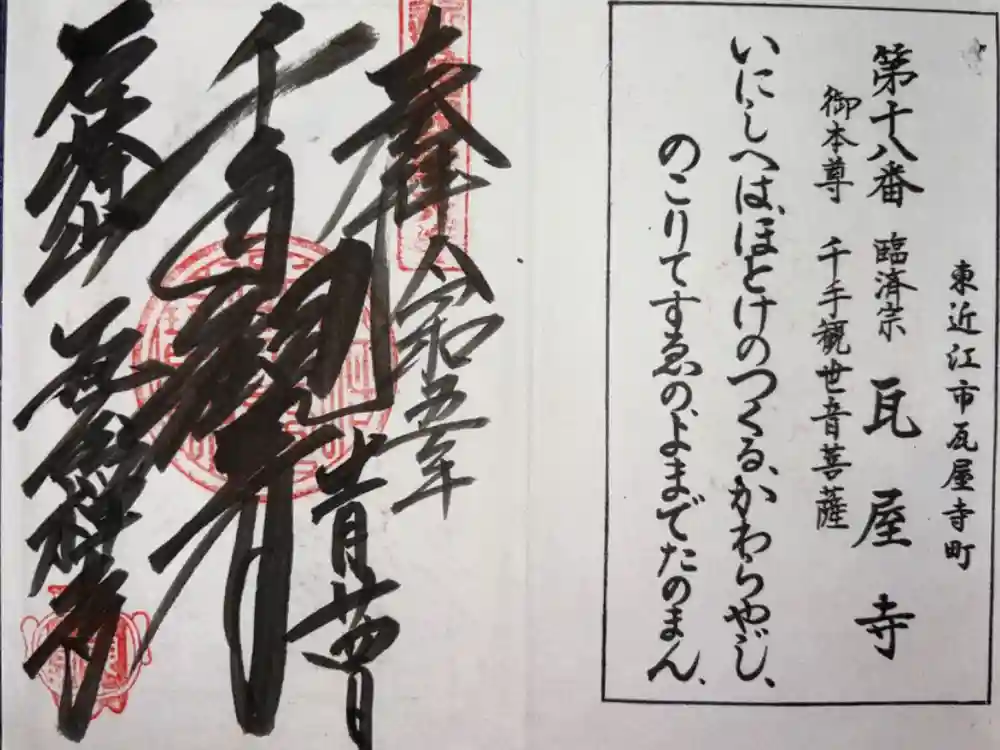 東近江市瓦屋寺町
第十八番 臨済宗 瓦屋寺
御本尊 千手観世音菩薩
いにしへは、ほとけのつくる、かわらやじ、
のこりてすゑの、よまでたのまん、
奉拝 令和五年
十一月廿四日
千手観音
瓦屋禅寺